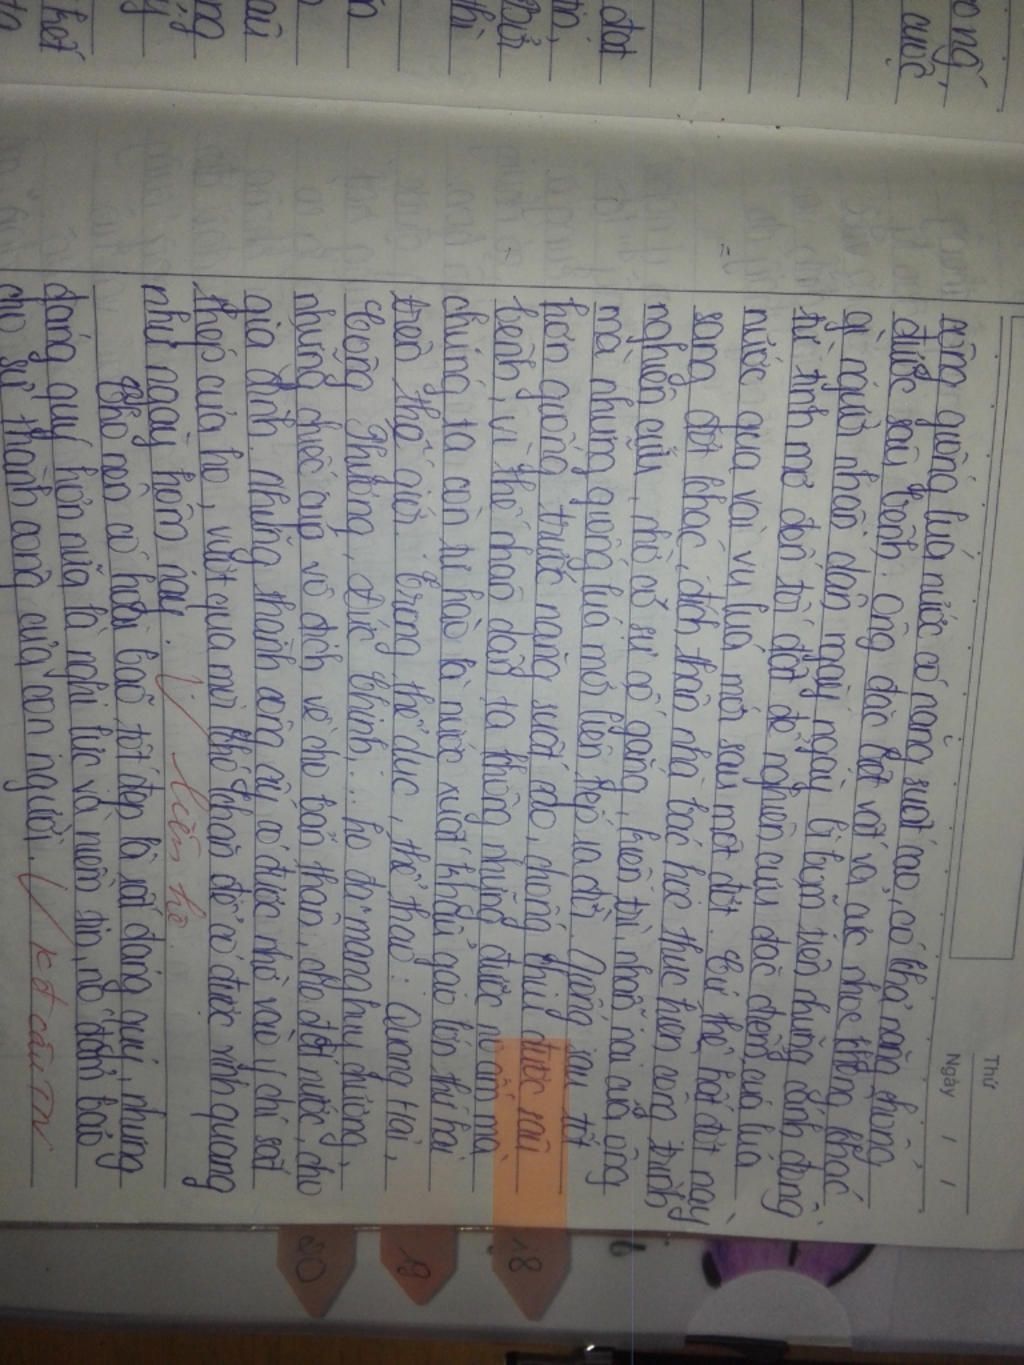 Thứ
Ngày / /
rộng giống lúa nước có năng suất cao, có khả năng chống
được sâu bệnh. Ông đặc biệt vất vả cực nhọc không khác
gì người nhân dân ngày ngày lì lợm trên những cánh đồng
từ tinh mơ đến tối đất để nghiên cứu đặc điểm của lúa
nước qua vài vụ lúa, mới sau một đợt. Cứ thế, hết đợt này
sang đợt khác, đích thân nhà bác học thực hiện công trình
nghiên cứu, nhờ có sự cố gắng, kiên trì, nhẫn nại của ông
mà những giống lúa mới liên tiếp ra đời. Giống sau tốt
hơn giống trước năng suất cao, chống chịu được sâu
bệnh, vì thế nhân dân ta không những được no ấm mà
chúng ta còn tự hào là nước xuất khẩu gạo lớn thứ hai
trên thế giới. Trong thể dục, thể thao: Quang Hải,
Công Phượng, Đức Chinh,... họ đã mang huy chương,
những chiếc cup vô địch về cho bản thân, cho đất nước, cho
gia đình. Những thành công ấy có được nhờ vào ý chí sắt
thép của họ, vượt qua mọi khó khăn để có được vinh quang
như ngày hôm nay.
liên hệ
Cho nên có hoài bão tốt đẹp là rất đáng quý, nhưng
đáng quý hơn nữa là nghị lực và niềm tin, nó đảm bảo
cho sự thành công của con người.
kết cấu TN
18
19
20
6